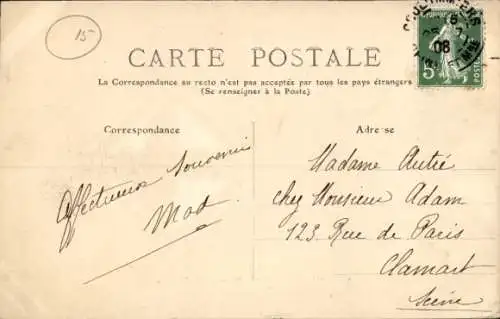 15
CARTE POSTALE
La Correspondance au recto n'est pas acceptée par tous les pays étrangers
(Se renseigner à la Poste)
Correspondance
Adresse
5
POSTES
08
Affectueux Souvenir
Mad.
Madame Autié
chez Monsieur Adam
123 Rue de Paris
Clamart
Seine